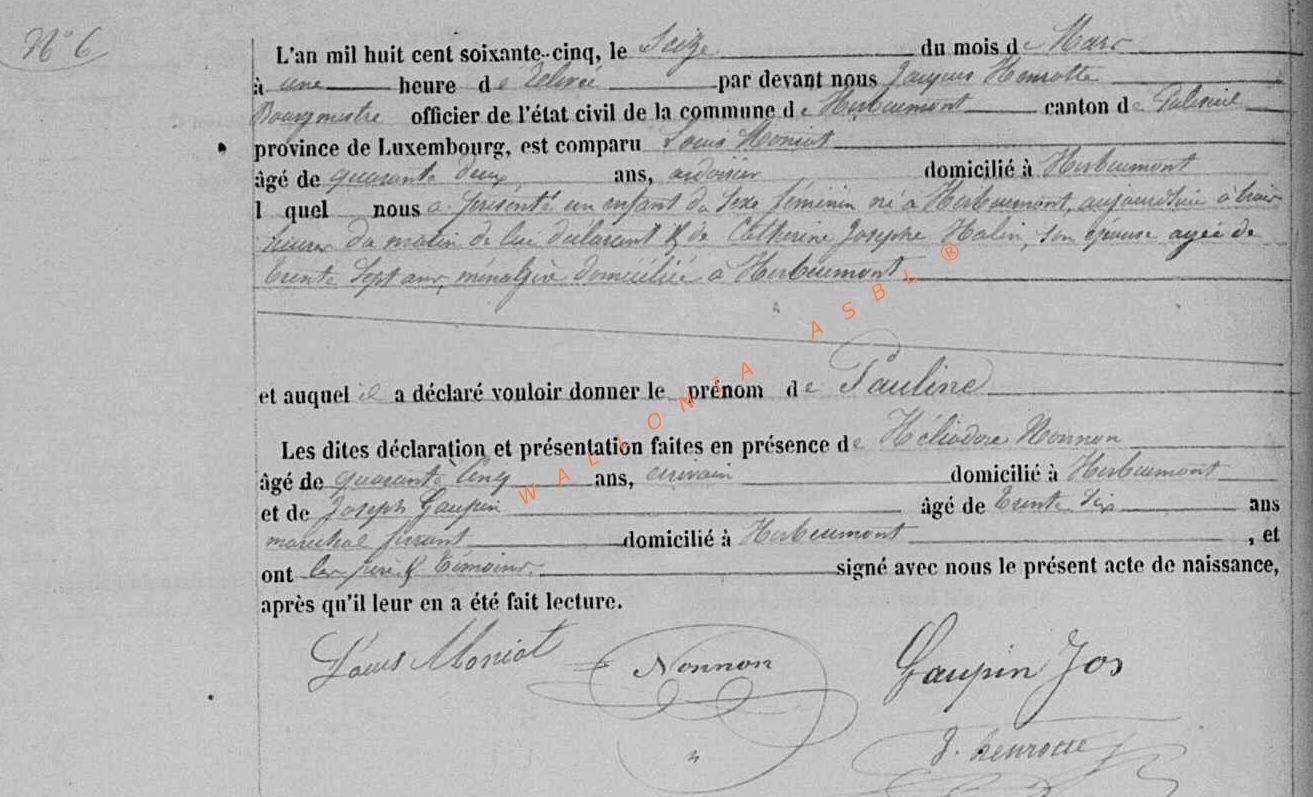 N° 6
L'an mil huit cent soixante-cinq, le Seize du mois de Mars
à une heure de relevée par devant nous Jacques Henrotte
Bourgmestre officier de l'état civil de la commune de Herbeumont canton de Paliseul
province de Luxembourg, est comparu Louis Moniot
âgé de quarante deux ans, ardoisier domicilié à Herbeumont
l quel nous a présenté un enfant du sexe féminin né à Herbeumont, aujourd'hui à trois
heures du matin de lui déclarant & de Catherine Josephe Halin, son épouse agée de
trente sept ans, ménagère domiciliée à Herbeumont
et auquel il a déclaré vouloir donner le prénom de Pauline
Les dites déclaration et présentation faites en présence de Héliodore Nonnon
âgé de quarante cinq ans, écrivain domicilié à Herbeumont
et de Joseph Gaupin âgé de trente six ans
maréchal ferrant domicilié à Herbeumont , et
ont les père & témoins signé avec nous le présent acte de naissance,
après qu'il leur en a été fait lecture.
Louis Moniot Nonnon Gaupin Jos
J. Henrotte
WALLONIA ASBL ®